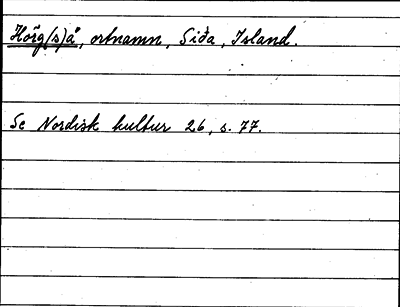 Hörg(s)å, ortnamn, Siða, Island.
Se Nordisk kultur 26, s. 77.